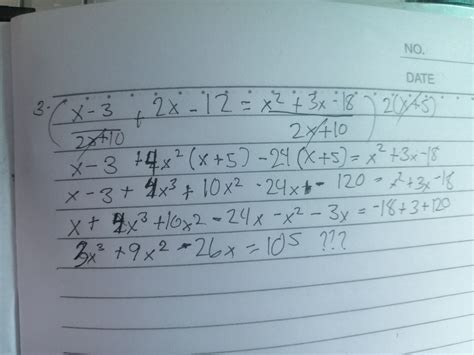 NO.
DATE
3. (x-3/2x+10 + 2x-12 = x²+3x-18/2x+10) 2(x+5)
x-3 +4x²(x+5) -24(x+5)= x²+3x-18
x-3+4x³+10x²-24x - 120 = x²+3x-18
x+4x³+10x²-24x-x²-3x=-18+3+120
3x³+9x²-26x=105 ???